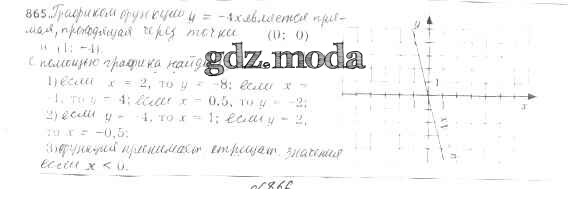 865. Графиком функции y = -4x является пря-
мая, проходящая через точки (0; 0)
и (1; -4).
С помощью графика найд
gdz.moda
1) если x = 2, то y = -8; если x =
-1, то y = 4; если x = 0.5, то y = -2;
2) если y = -4, то x = 1; если y = 2,
то x = -0,5;
3) функция принимает отрицат. значения
если x < 0.
y
1
x